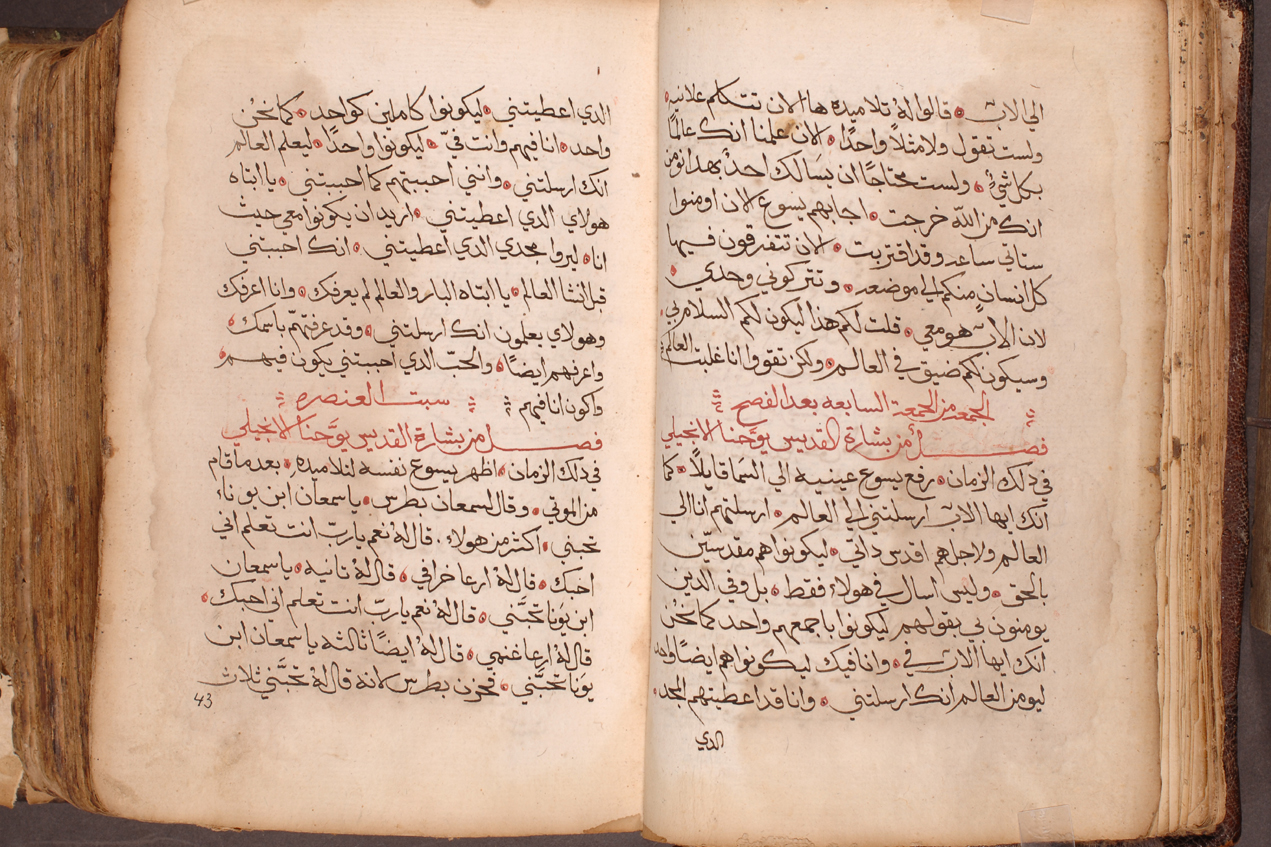 الي الابّ قالوا لهُ تلاميذه ها الان تتكلم علانيه
ولست تقول ولا مثلاً واحدًا لان علمنا انك عالمًا
بكل شيءٍ ولست محتاجًا ان يسَالك احدٌ بهدا نومن
انك من اللّه خرجت اجابهم يسوع الان اومنوا
ستاتي ساعه وقد اقتربت لان تتفرقون فيها
كل انسانٍ منكم الي موضعه وتتركوني وحدي
لان الابّ هو معي قلت لكم هذا ليكون لكم السلام بي
وسيكون لكم ضيق في العالم ولكن تقووا انا غلبت العالم
الجمعه من الجمعة السابعه بعد الفصح
فصل من بشارة القديس يوحنا الانجيلي
في دلك الزمان رفع يسوع عينيه الي السَما قايلاً كما
انك ايها الابّ ارسلتني الي العالم ارسلتهم انا الي
العالم ولاجلهم اقدس داتي ليكونوا هم مقدسيّن
بالحق وليس اسال في هولاء فقط بل وفي الدين
يومنون بي بقولهم ليكونوا باجمعهم واحد كما نحن
انك ايها الابّ فيّ وانا فيك ليكونوا هم ايضًا واحد
ليومن العالم انك ارسلتني وانا قد اعطيتهم المجد
الدي
الدي اعطيتني ليكونوا كاملين كواحد كما نحن
واحد انا فيهم وانت فيّ ليكونوا واحدًا ليعلم العالم
انك ارسلتني وانني احببتهم كما احببتني يا ابتاه
هولاي الدي اعطيتني اريد ان يكونوا معي حيث
انا ليروا مجدي الدي اعطيتني انك احببتني
قبل انشا العالم يا ابتاه البار والعالم لم يعرفك وانا اعرفك
وهولاي يعلمون انك ارسلتني وقد عرفتهم باسمك
واعرفهم ايضًا والحبّ الدي احببتني يكون فيهم
واكون انا فيهم سبت العنصره
فصل من بشارة القديس يوحنا الانجيلي
في دلك الزمان اظهر يسوع نفسه لتلاميده بعد ما قام
من الموتي وقال لسمعان بطرس يا سمعان ابن يونا
تحبني اكثر من هولاء قال لهُ نعم يا ربّ انت تعلم اني
احبك قال لهُ ارعا خرافي قال لهُ تانيه يا سمعان
ابن يوَنا تحبَّني قال لهُ نعم يا ربّ انت تعلم اني احبك
قال لهُ ارعا غنمي قال لهُ ايضًا تالته يا سمعان ابن
يوَنا تحبَّني فحزن بطرس لانه قال لهُ تحبَّني ثلاث
43